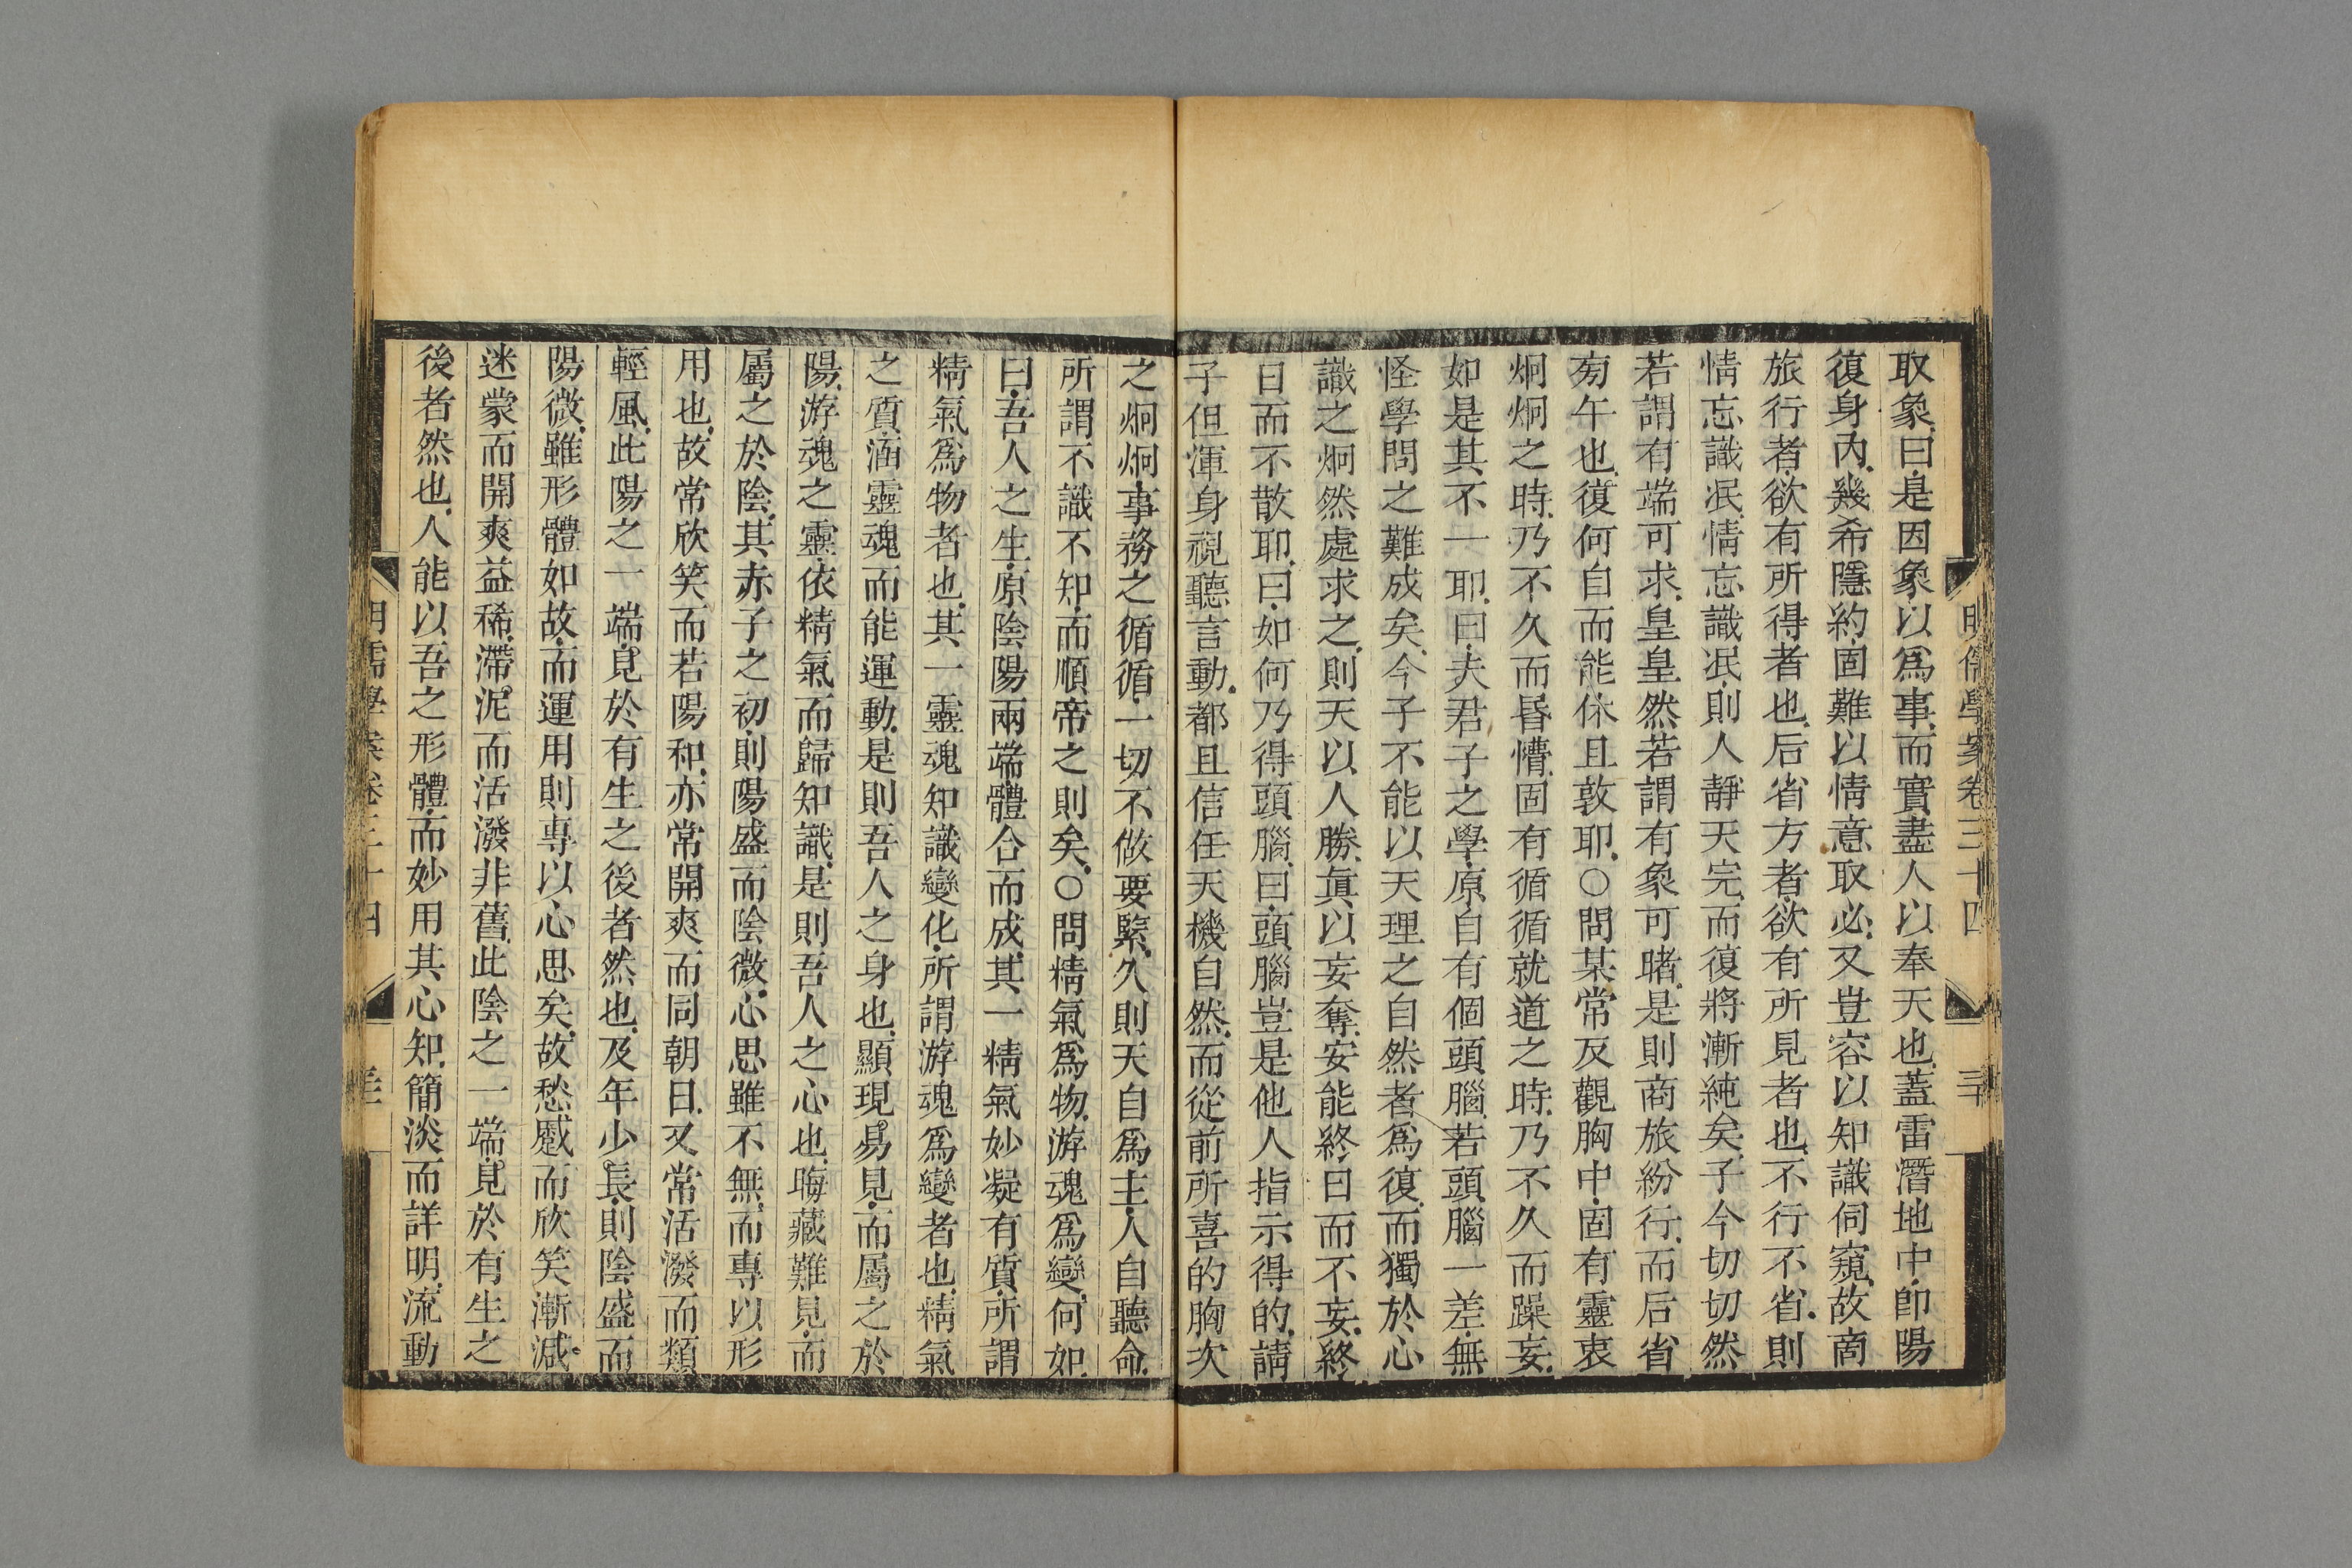 明儒學案卷三十四
取象曰是因象以爲事而實盡人以奉天也蓋雷潛地中卽陽
復身內幾希隱約固難以情意取必又豈容以知識伺窺故商
旅行者欲有所得者也后省方者欲有所見者也不行不省則
情忘識泯情忘識泯則人靜天完而復將漸純矣子今切切然
若謂有端可求皇皇然若謂有象可睹是則商旅紛行而后省
旁午也復何自而能休且敦耶○問某常反觀胸中固有靈衷
炯炯之時乃不久而昏懵固有循循就道之時乃不久而躁妄
如是其不一耶曰夫君子之學原自有個頭腦若頭腦一差無
怪學問之難成矣今子不能以天理之自然者爲復而獨於心
識之炯然處求之則天以人勝眞以妄奪安能終日而不妄終
日而不散耶曰如何乃得頭腦曰頭腦豈是他人指示得的請
子但渾身視聽言動都且信任天機自然而從前所喜的胸次
之炯炯事務之循循一切不做要緊久則天自爲主人自聽命
所謂不識不知而順帝之則矣○問精氣爲物游魂爲變何如
曰吾人之生原陰陽兩端體合而成其一精氣妙凝有質所謂
精氣爲物者也其一靈魂知識變化所謂游魂爲變者也精氣
之質涵靈魂而能運動是則吾人之身也顯現易見而屬之於
陽游魂之靈依精氣而歸知識是則吾人之心也晦藏難見而
屬之於陰其赤子之初則陽盛而陰微心思雖不無而專以形
用也故常欣笑而若陽和亦常開爽而同朝日又常活潑而類
輕風此陽之一端見於有生之後者然也及年少長則陰盛而
陽微雖形體如故而運用則專以心思矣故愁慼而欣笑漸減
迷蒙而開爽益稀滯泥而活潑非舊此陰之一端見於有生之
後者然也人能以吾之形體而妙用其心知簡淡而詳明流動
明儒學案卷三十四